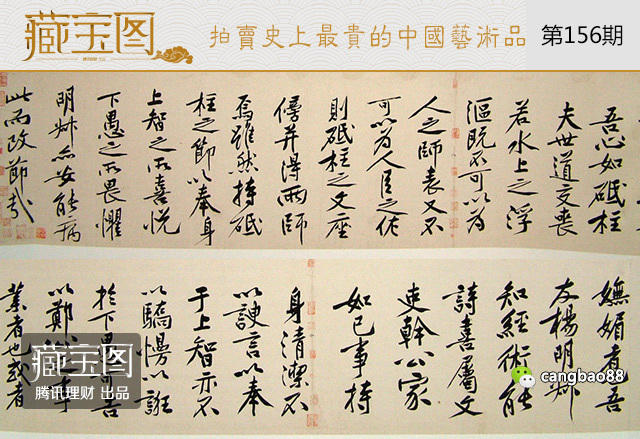 藏宝图
拍賣史上最貴的中國藝術品
第156期
吾心如砥柱
夫世道交喪
若水上之浮
漚既不可以為
人之師表又不
可以為人臣之佐
則砥柱之文座
傍并得兩師
焉雖然持砥
柱之節以奉身
上智之所喜悅
下愚之所畏懼
明叔亦安能病
此而改節哉
嫵媚者吾
友楊明叔
知經術能
詩喜屬文
吏幹公家
如己事持
身清潔不
以諛言以奉
于上智亦不
以驕慢以誑
於下愚可告
以鄭公之事
業者也或者
藏宝图
腾讯理财 出品
cangbao88